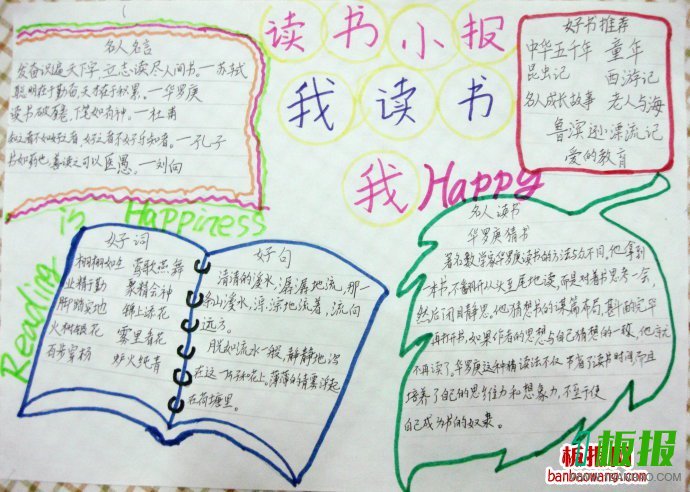 读书小报
我读书
我Happy
名人名言
发奋识遍天下字,立志读尽人间书。—苏轼
聪明在于勤奋,天才在于积累。—华罗庚
读书破万卷,下笔如有神。—杜甫
知之者不如好之者,好之者不如乐知者。—孔子
书如药也,善读之可以医愚。—刘向
好书推荐
中华五千年 童年
昆虫记 西游记
名人成长故事 老人与海
鲁滨逊漂流记
爱的教育
Reading is Happiness
好词
栩栩如生 莺歌燕舞
业精于勤 聚精会神
脚踏实地 锦上添花
火树银花 雾里看花
百步穿杨 炉火纯青
好句
清清的溪水,潺潺地流,那一
汩山溪水,淙淙地流着,流向
远方。
月光如流水一般,静静地泻
在这一片叶子和花上。薄薄的青雾浮起
在荷塘里。
名人读书
华罗庚猜书
著名数学家华罗庚读书的方法与众不同,他拿到
一本书,不翻开从头至尾地读,而是对着书思考一会,
然后闭目静思,他猜想书的谋篇布局,斟酌完毕
再打开书,如果作者的思想与自己猜想的一致,他就
不再读了,华罗庚这种猜读法不仅节省了读书时间,而且
培养了自己的思维力和想象力,不至于使
自己成为书的奴隶。
板报网
banbaowang.com
板报